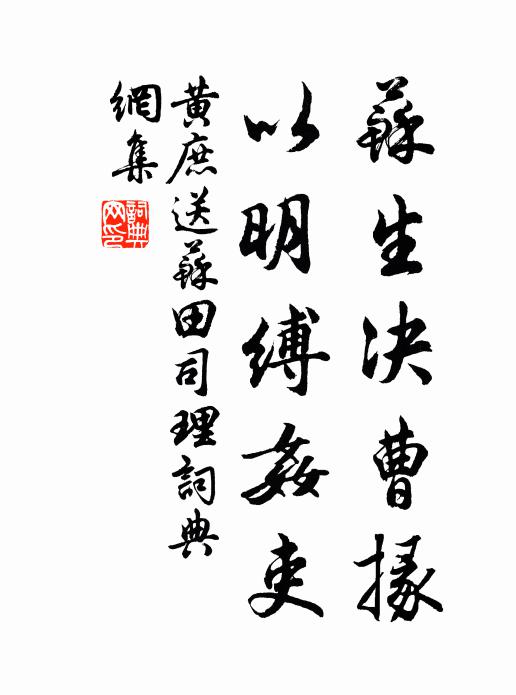 蘇生決曹掾
以明縛姦吏
黃庶送蘇田司理詞典
網集
詞典網印